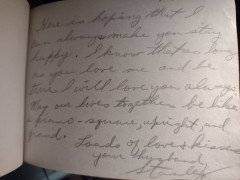 Here is hoping that I
can always make you stay
happy. I know that as long
as you love me and be
true I will love you always
May our lives together be like
a piano - square, upright and
grand.
Loads of love & kisses
your husband,
Stanley